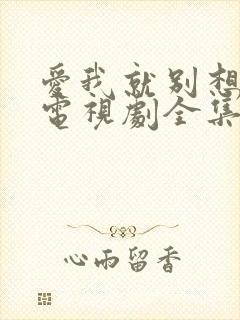 愛我就別想
電視劇全集
心雨留香